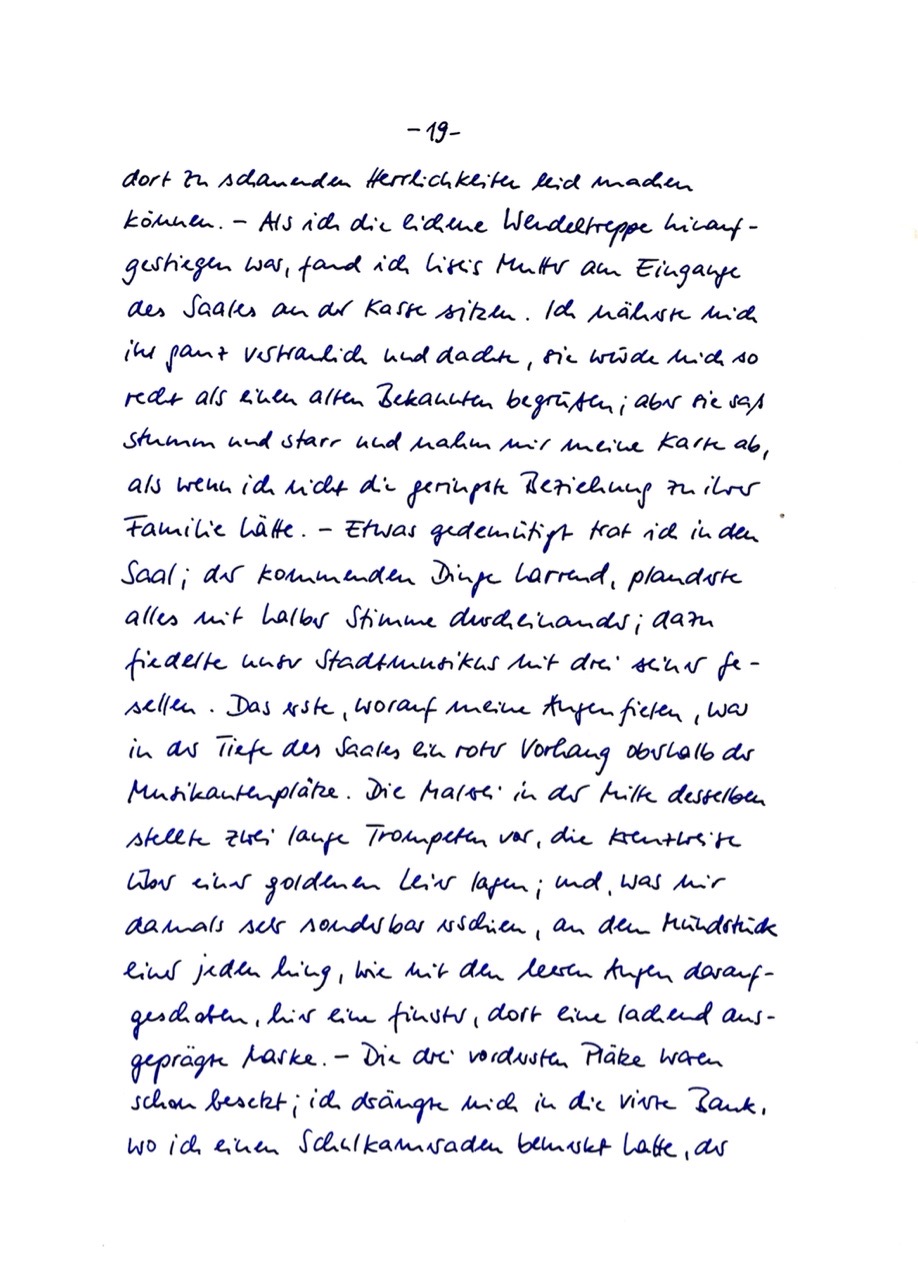 -19-
dort zu schauenden Herrlichkeiten leid machen
können. - Als ich die eichene Wendeltreppe hinauf-
gestiegen war, fand ich Lisei's Mutter am Eingange
des Saales an der Kasse sitzen. Ich näherte mich
ihr ganz vertraulich und dachte, sie würde mich so
recht als einen alten Bekannten begrüßen; aber sie saß
stumm und starr und nahm mir meine Karte ab,
als wenn ich nicht die geringste Beziehung zu ihrer
Familie hätte. - Etwas gedemütigt trat ich in den
Saal; der kommenden Dinge harrend, plauderte
alles mit halber Stimme durcheinander; dazu
fiedelte unser Stadtmusikus mit drei seiner Ge-
sellen. Das erste, worauf meine Augen fielen, war
in der Tiefe des Saales ein roter Vorhang oberhalb der
Musikantenplätze. Die Malerei in der Mitte desselben
stellte zwei lange Trompeten vor, die kreuzweise
über einer goldenen Leier lagen; und, was mir
damals sehr sonderbar erschien, an dem Mundstück
einer jeden hing, wie mit den leeren Augen darauf-
geschoben, hier eine finster, dort eine lachend aus-
geprägte Maske. - Die drei vordersten Plätze waren
schon besetzt; ich drängte mich in die vierte Bank,
wo ich einen Schulkameraden bemerkt hatte, der